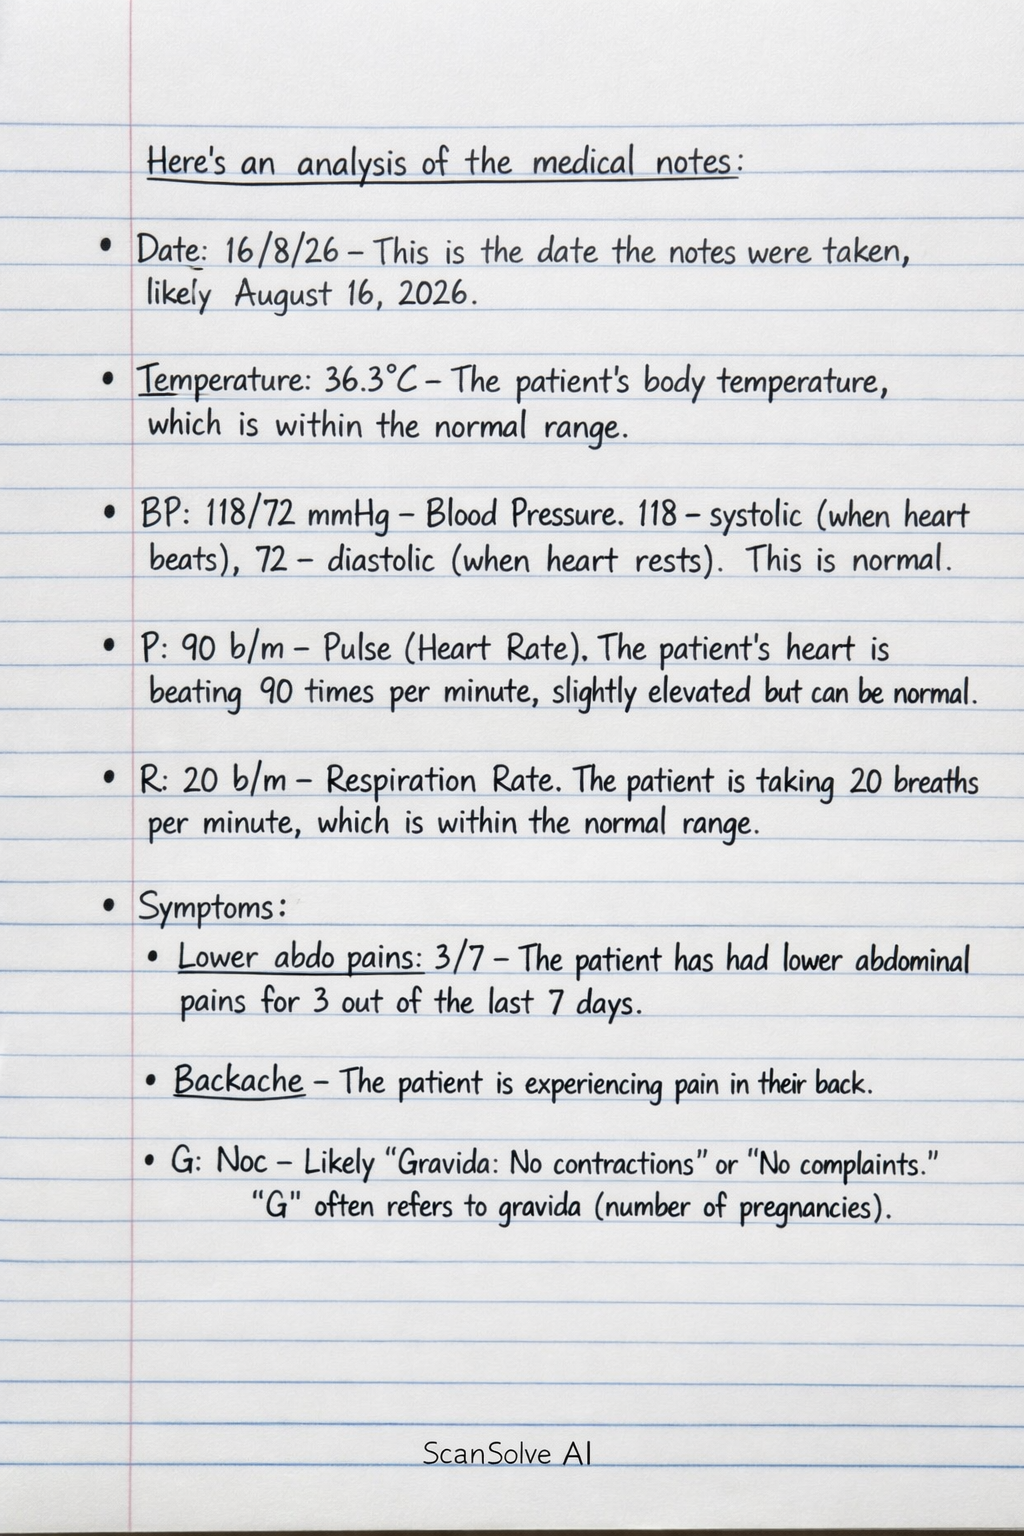 Here's an analysis of the medical notes:
• Date: 16/8/26 – This is the date the notes were taken,
likely August 16, 2026.
• Temperature: 36.3°C – The patient's body temperature,
which is within the normal range.
• BP: 118/72 mmHg – Blood Pressure. 118 – systolic (when heart
beats), 72 – diastolic (when heart rests). This is normal.
• P: 90 b/m – Pulse (Heart Rate). The patient's heart is
beating 90 times per minute, slightly elevated but can be normal.
• R: 20 b/m – Respiration Rate. The patient is taking 20 breaths
per minute, which is within the normal range.
• Symptoms:
• Lower abdo pains: 3/7 – The patient has had lower abdominal
pains for 3 out of the last 7 days.
• Backache – The patient is experiencing pain in their back.
• G: Noc – Likely “Gravida: No contractions” or “No complaints.”
“G” often refers to gravida (number of pregnancies).
ScanSolve AI